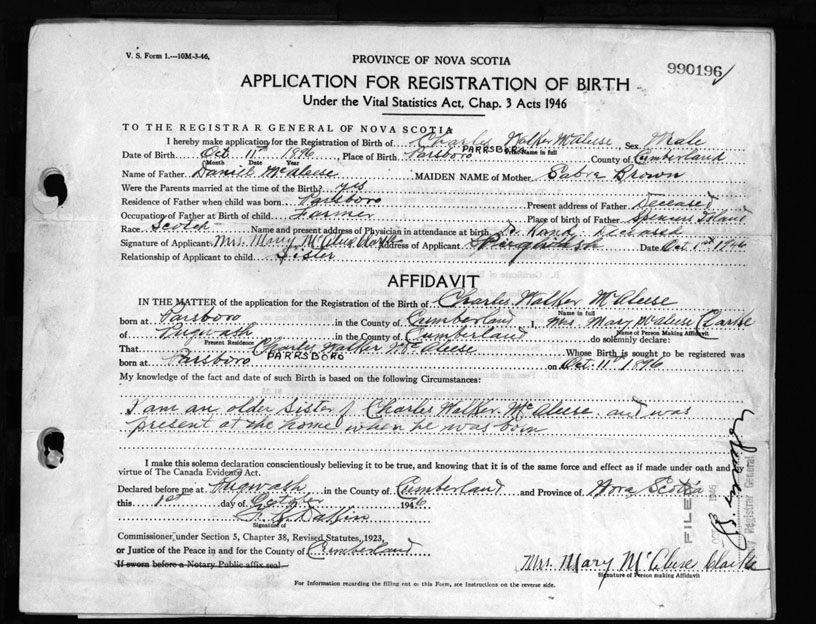 V. S. Form 1.—10M-3-46.
PROVINCE OF NOVA SCOTIA
990196
APPLICATION FOR REGISTRATION OF BIRTH
Under the Vital Statistics Act, Chap. 3 Acts 1946
TO THE REGISTRAR GENERAL OF NOVA SCOTIA
I hereby make application for the Registration of Birth of Charles Walker McAleese, Sex Male
PARRSBORO Name in full
Date of Birth Oct 11th 1896, Place of Birth Parsboro County of Cumberland
Month Date Year
Name of Father Daniel McAleese MAIDEN NAME of Mother Sabra Brown
Were the Parents married at the time of the Birth? yes
Residence of Father when child was born Parsboro Present address of Father Deceased
Occupation of Father at Birth of child Farmer Place of Birth of Father Spencers Island
Race Scotch Name and present address of Physician in attendance at birth Dr. Rand
Signature of Applicant Mrs. Mary McAleese Clarke Address of Applicant Pugwash Date Oct 1st 1946
Relationship of Applicant to child Sister
AFFIDAVIT
IN THE MATTER of the application for the Registration of the Birth of Charles Walker McAleese
Name in full
born at Parsboro in the County of Cumberland I, Mrs. Mary McAleese Clarke
Name of Person Making Affidavit
of Pugwash in the County of Cumberland do solemnly declare:
Present Residence
That Charles Walker McAleese Whose Birth is sought to be registered was
born at Parsboro PARRSBORO on Oct. 11th 1896
My knowledge of the fact and date of such Birth is based on the following Circumstances:
I am an older sister of Charles Walker McAleese and was
present at the home when he was born
I make this solemn declaration conscientiously believing it to be true, and knowing that it is of the same force and effect as if made under oath and
virtue of The Canada Evidence Act.
Declared before me at Pugwash in the County of Cumberland and Province of Nova Scotia
this 1st day of October 1946
Signature of
Commissioner, under Section 5, Chapter 38, Revised Statutes, 1923,
or Justice of the Peace in and for the County of Cumberland
If sworn before a Notary Public affix seal
Mrs. Mary McAleese Clarke
Signature of Person making Affidavit
For Information regarding the filling out of this Form, see Instructions on the reverse side.
FILED
1946
Registrar General